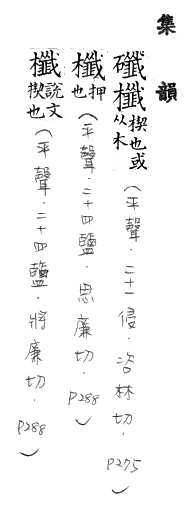 集韻
䃸櫼楔也或从木(平聲.二十一侵.咨林切.P275)
櫼押也(平聲.二十四鹽.思廉切.P288)
櫼說文楔也(平聲.二十四鹽.將廉切.P288)